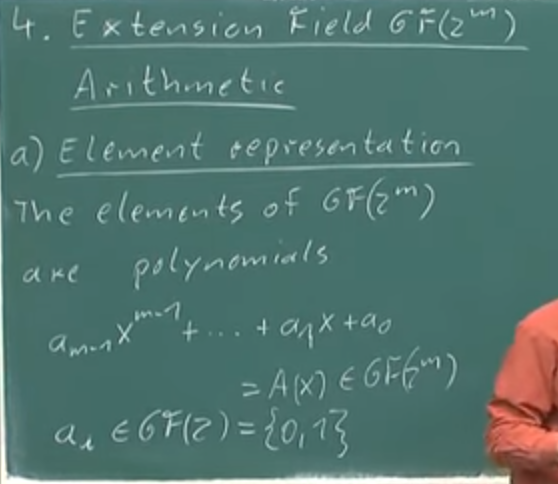 4. Extension Field GF(2^m)
Arithmetic
a) Element representation
The elements of GF(2^m)
are polynomials
a_{m-1}x^{m-1} + ... + a_1x + a_0
= A(x) ∈ GF(2^m)
a_i ∈ GF(2) = {0,1}